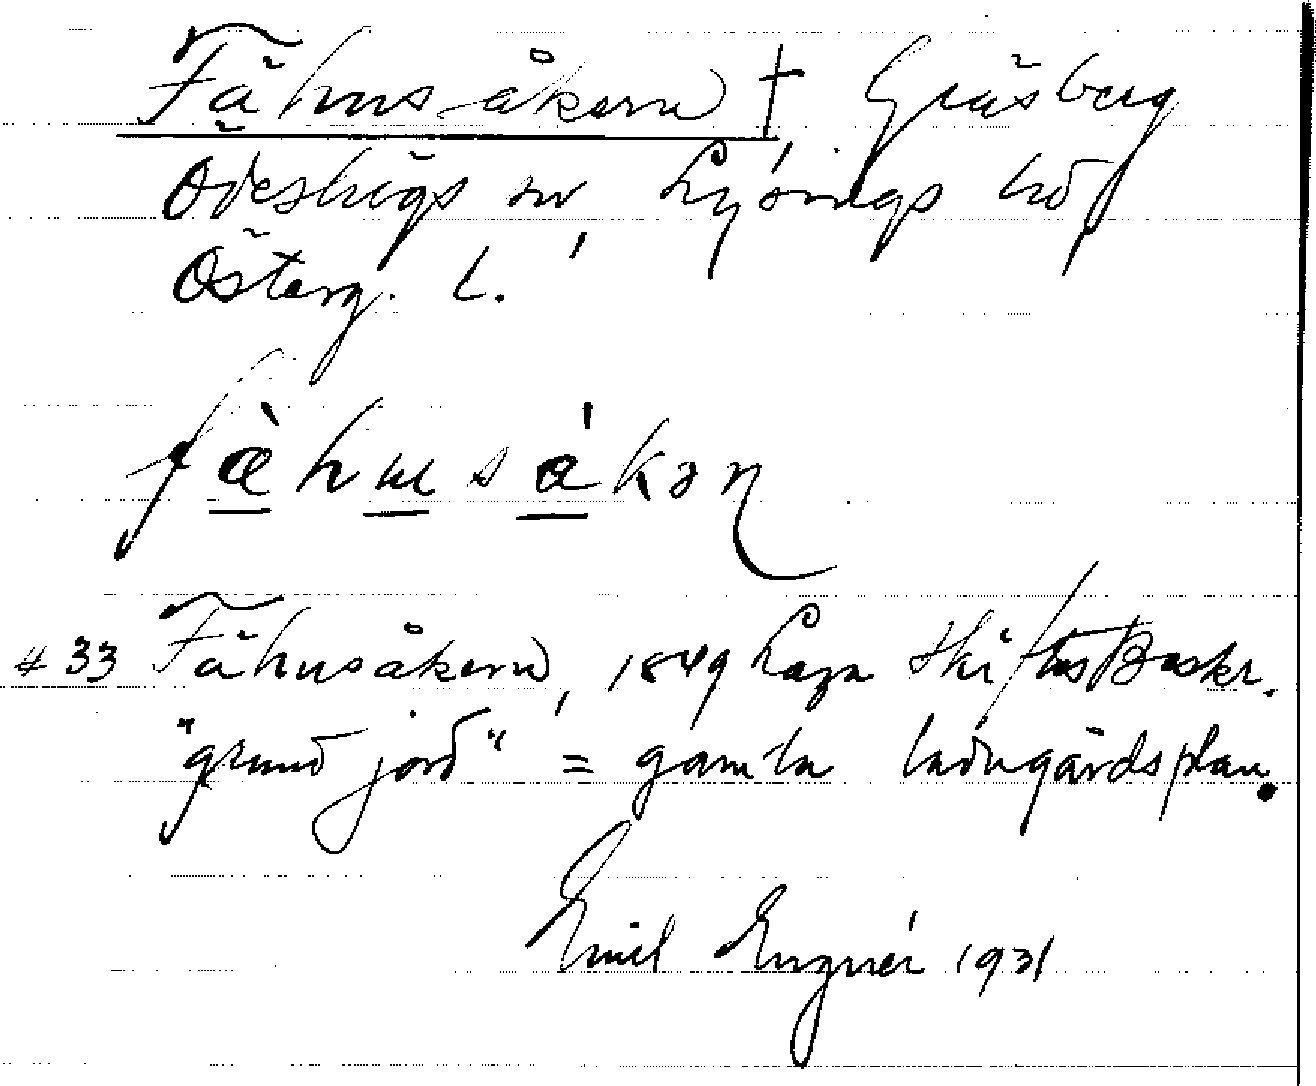 Fähusåkern † Gräsberg
Ödeshögs sn, Lysings hd,
Österg. L.
fæ̀husákən
# 33 Fähusåkern, 1849 Laga Skiftes Beskr.
"grund jord" = gamla ladugårdsplan.
Emil Engnér 1931